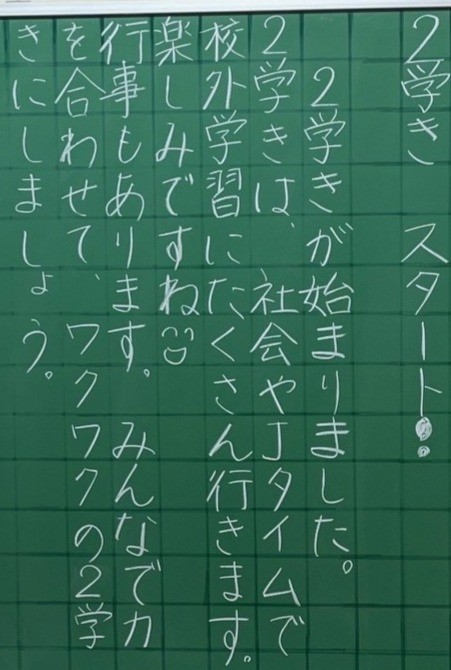 2学き　スタート!!
2学きが始まりました。
2学きは、社会やJタイムで
校外学習にたくさん行きます。
楽しみですね
行事もあります。みんなで力
を合わせて、ワクワクの2学
きにしましょう。